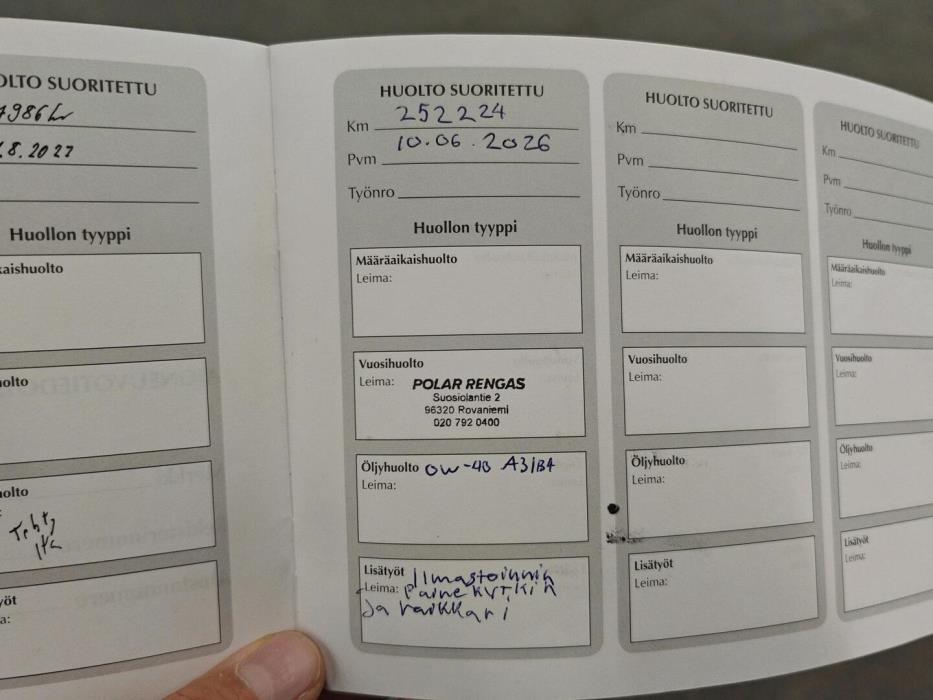 OLTO SUORITETTU
7986 hr
.8.2021
Huollon tyyppi
kaishuolto
olto
olto
Tehty
itse
yöt
a:
HUOLTO SUORITETTU
Km 252224
Pvm 10.06.2026
Työnro
Huollon tyyppi
Määräaikaishuolto
Leima:
Vuosihuolto
Leima: POLAR RENGAS
Suosiolantie 2
96320 Rovaniemi
020 792 0400
Öljyhuolto 0W-40 A3/B4
Leima:
Lisätyöt Ilmastoinnin
Leima: painekytkin
ja raikkari
HUOLTO SUORITETTU
Km
Pvm
Työnro
Huollon tyyppi
Määräaikaishuolto
Leima:
Vuosihuolto
Leima:
Öljyhuolto
Leima:
Lisätyöt
Leima:
HUOLTO SUORITETTU
Km
Pvm
Työnro
Huollon tyyppi
Määräaikaishuolto
Leima:
Vuosihuolto
Leima:
Öljyhuolto
Leima:
Lisätyöt
Leima: